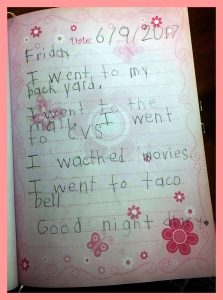 Date: 6/9/2017
Friday
I went to my
back yard.
I went to the
mall I went
to CVS
I wacthed movies.
I went to taco
bell
Good night